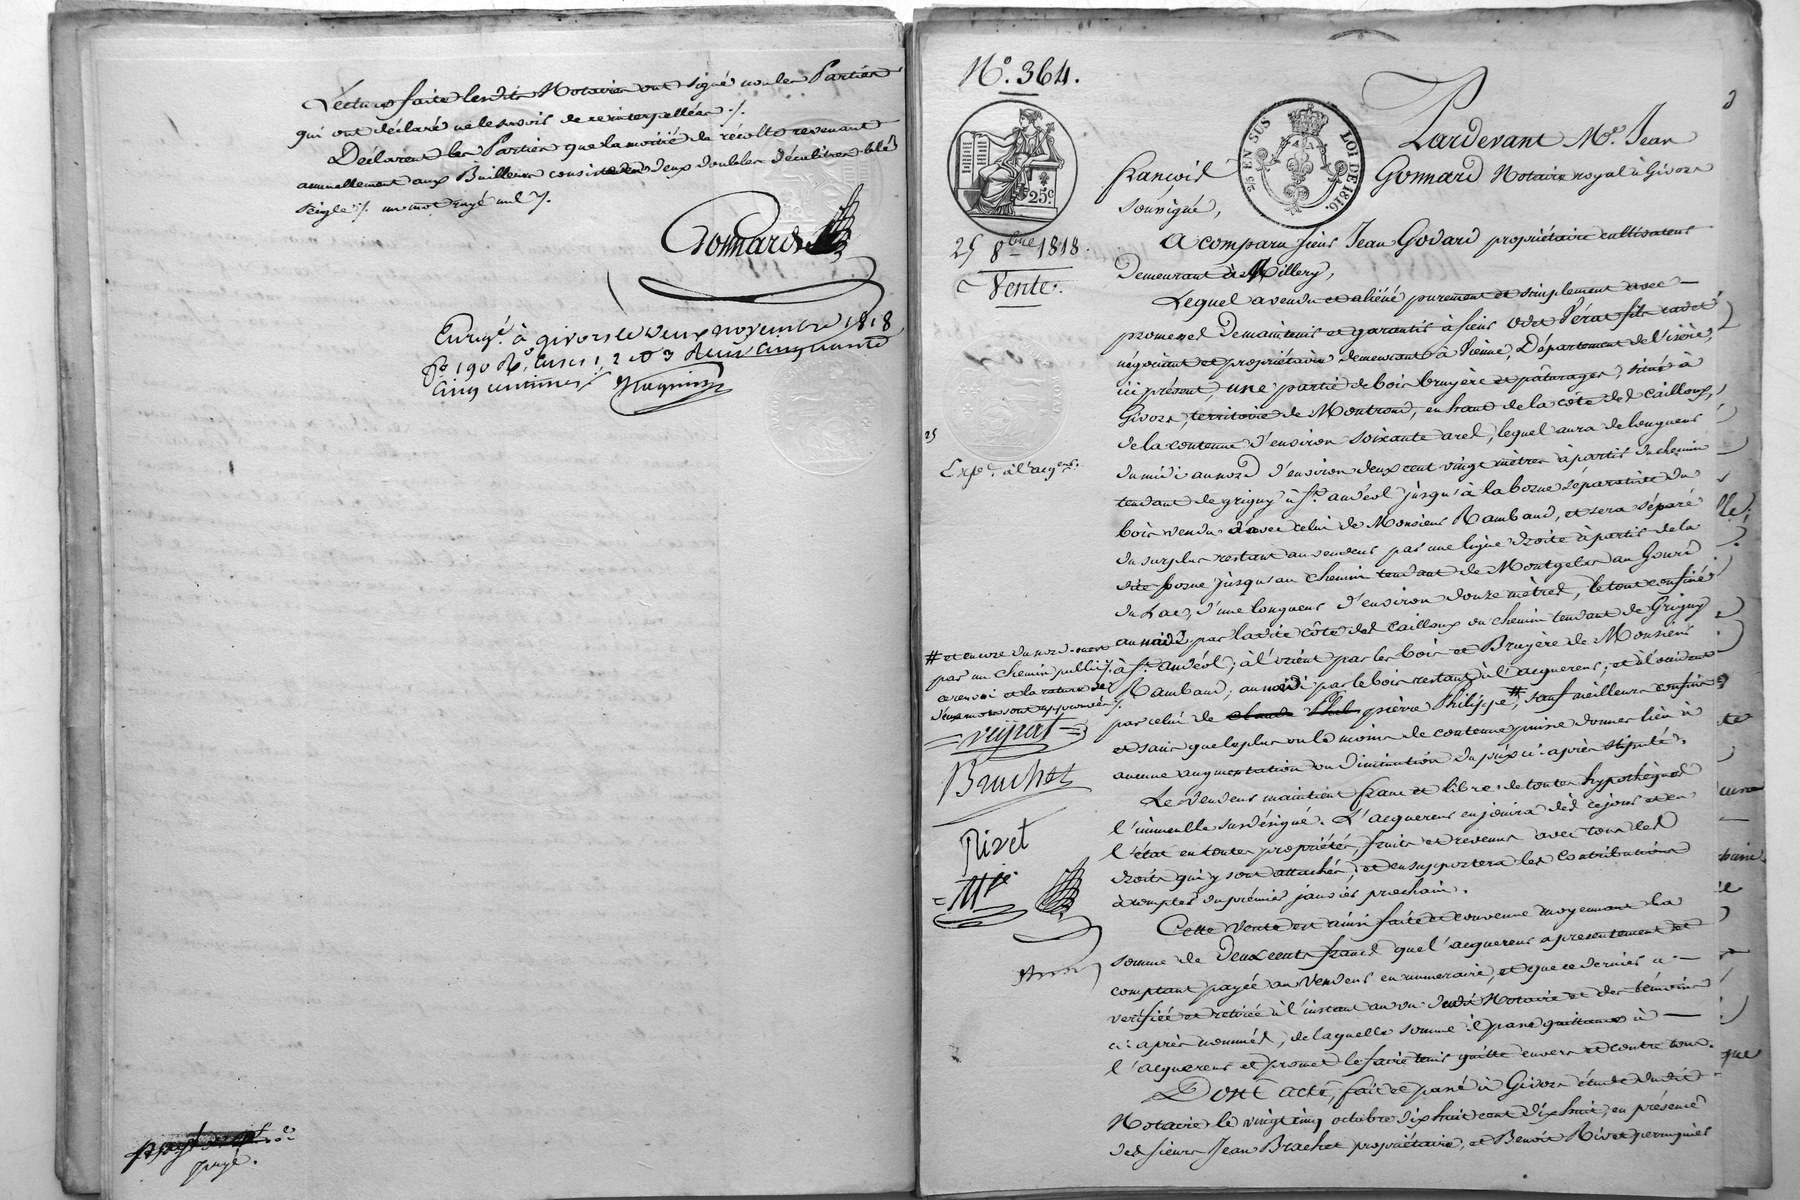 Lecture faite lesdits Notaires ont signé non les Parties
qui ont déclaré ne le savoir de ce interpellées ./.
Déclarent les Parties que la moitié de récolte revenant
annuellement aux Bailleurs consiste en deux doubles décalitres blé
seigle ./. un mot rayé nul ./.
Gonnard
Enreg.é à givors le deux novembre 1818
f.o 190 R.o Cases 1, 2 et 3 Reçu Cinquante
Cinq centimes
payé.
N.o 364.
25 EN SUS
LOI DE 1816.
25 c
25 8bre 1818.
Vente.
25
Exp.é à l'acq.eur.
Pardevant M.e Jean
françois Gonnard Notaire royal à Givors
soussigné,
A comparu sieur Jean Godard propriétaire cultivateur
demeurant à Millery,
Lequel a vendu et aliéné purement et simplement avec
promesse de maintenir et garantir à sieur Odet Pérat fils cadet
négociant et propriétaire demeurant à Vienne, Département de l'isère,
ici présent, une partie de bois bruyère et pâturages, situé à
Givors, territoire de Montrond, en haut de la côte des cailloux,
de la contenue d'environ soixante ares, lequel aura de longueur
du midi au nord d'environ deux cent vingt mètres à partir du chemin
tendant de grigny à St. andéol jusqu'à la borne séparative du
bois vendu d'avec celui de Monsieur Rambaud, et sera séparé
du surplus restant au vendeur par une ligne droite à partir de la
dite borne jusqu'au chemin tendant de Montgelas au Gourd
du Lac, d'une longueur d'environ douze mètres, le tout confiné
au midi par ladite côte des cailloux ou chemin tendant de Grigny
à St. andéol; à l'orient par les bois et Bruyère de Monsieur
Rambaud; au midi par le bois restant à l'acquereur; et à l'occident
par celui de claude pierre Philippe #, sauf meilleurs confins
et sans que le plus ou le moins de contenue puisse donner lieu à
aucune augmentation ou diminution du prix ci-après stipulé.
# et encore du nord
par un chemin public ./.
ce renvoi et la rature de
deux mots sont approuvés ./.
Brachet
Rivet
Le vendeur maintient franc et libre de toutes hypothèques
l'immeuble susdésigné. L'acquereur en jouira dès ce jour et en
l'état en toutes propriétés, fruits et revenus avec tous les
droits qui y sont attachés, et en supportera les contributions
à compter du prémier janvier prochain.
Cette vente est ainsi faite et convenue moyennant la
somme de Deux cents francs que l'acquereur a présentement et
comptant payée au Vendeur en numeraire, et que ce dernier a
vérifiée et retirée à l'instant au vu dudit Notaire et des témoins
ci-après nommés, de laquelle somme il passe quittance à
l'acquereur et promet le faire tenir quitte envers et contre tous.
Dont acte, fait et passé à Givors étude dudit
Notaire le vingt cinq octobre dix huit cent dix huit, en présence
des sieurs Jean Brachet propriétaire, et Benoit Rivet perruquier